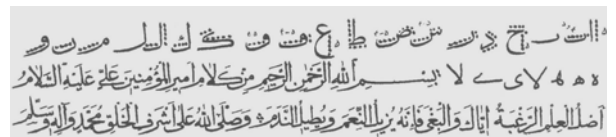 ا ب ح د ر س ص ط ع ف ق ك ل م ن و
ه ه لا ي ے لا بسم الله الرحمن الرحيم من كلام أمير المؤمنين علي عليه السلام
العلم الرغبة إياك والبغي فإنه يزيل النعم ويطيل الندم وصلى الله على أشرف الخلق محمد وآله وسلم